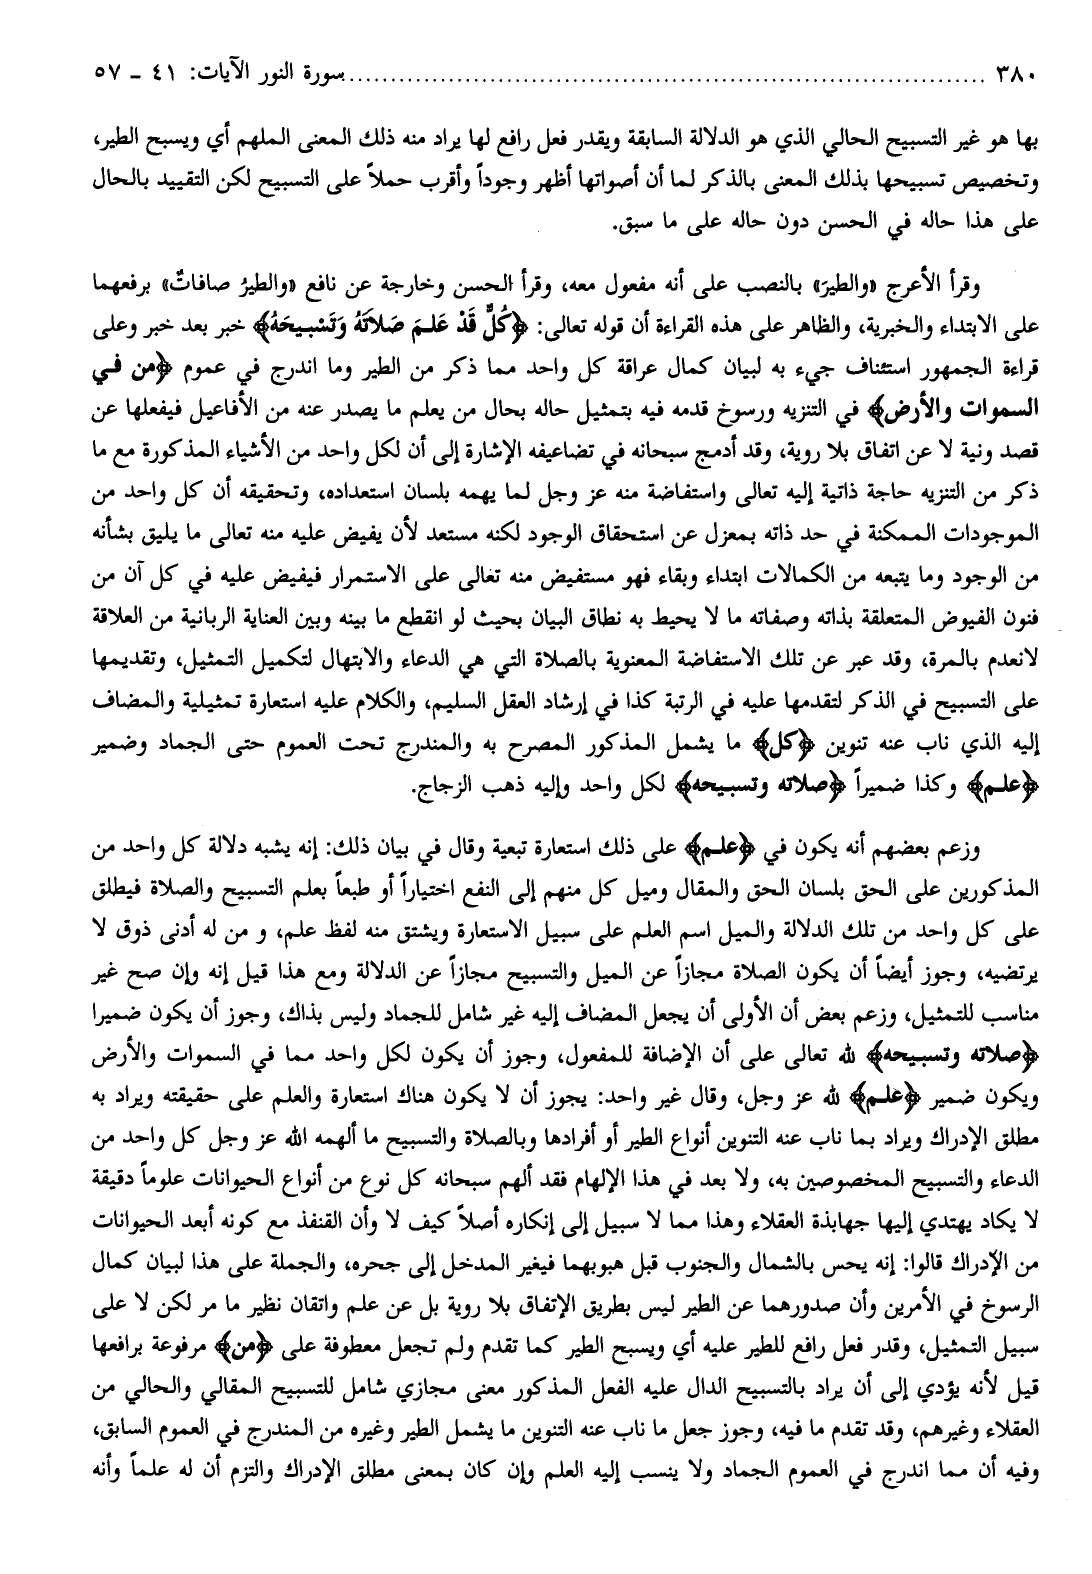 ٣٨٠ ........................................................................... سورة النور الآيات: ٤١ ـ ٥٧
بها هو غير التسبيح الحالي الذي هو الدلالة السابقة ويقدر فعل رافع لها يراد منه ذلك المعنى الملهم أي ويسبح الطير،
وتخصيص تسبيحها بذلك المعنى بالذكر لما أن أصواتها أظهر وجوداً وأقرب حملاً على التسبيح لكن التقييد بالحال
على هذا حاله في الحسن دون حاله على ما سبق.
وقرأ الأعرج «والطيرَ» بالنصب على أنه مفعول معه، وقرأ الحسن وخارجة عن نافع «والطيرُ صافاتٌ» برفعهما
على الابتداء والخبرية، والظاهر على هذه القراءة أن قوله تعالى: ﴿كُلٌّ قَدْ عَلمَ صَلاتَهُ وَتَسْبيحَهُ﴾ خبر بعد خبر وعلى
قراءة الجمهور استئناف جيء به لبيان كمال عراقة كل واحد مما ذكر من الطير وما اندرج في عموم ﴿من في
السموات والأرض﴾ في التنزيه ورسوخ قدمه فيه بتمثيل حاله بحال من يعلم ما يصدر عنه من الأفاعيل فيفعلها عن
قصد ونية لا عن اتفاق بلا روية، وقد أدمج سبحانه في تضاعيفه الإشارة إلى أن لكل واحد من الأشياء المذكورة مع ما
ذكر من التنزيه حاجة ذاتية إليه تعالى واستفاضة منه عز وجل لما يهمه بلسان استعداده، وتحقيقه أن كل واحد من
الموجودات الممكنة في حد ذاته بمعزل عن استحقاق الوجود لكنه مستعد لأن يفيض عليه منه تعالى ما يليق بشأنه
من الوجود وما يتبعه من الكمالات ابتداء وبقاء فهو مستفيض منه تعالى على الاستمرار فيفيض عليه في كل آن من
فنون الفيوض المتعلقة بذاته وصفاته ما لا يحيط به نطاق البيان بحيث لو انقطع ما بينه وبين العناية الربانية من العلاقة
لانعدم بالمرة، وقد عبر عن تلك الاستفاضة المعنوية بالصلاة التي هي الدعاء والابتهال لتكميل التمثيل، وتقديمها
على التسبيح في الذكر لتقدمها عليه في الرتبة كذا في إرشاد العقل السليم، والكلام عليه استعارة تمثيلية والمضاف
إليه الذي ناب عنه تنوين ﴿كل﴾ ما يشمل المذكور المصرح به والمندرج تحت العموم حتى الجماد وضمير
﴿علم﴾ وكذا ضميراً ﴿صلاته وتسبيحه﴾ لكل واحد وإليه ذهب الزجاج.
وزعم بعضهم أنه يكون في ﴿علم﴾ على ذلك استعارة تبعية وقال في بيان ذلك: إنه يشبه دلالة كل واحد من
المذكورين على الحق بلسان الحق والمقال وميل كل منهم إلى النفع اختياراً أو طبعاً بعلم التسبيح والصلاة فيطلق
على كل واحد من تلك الدلالة والميل اسم العلم على سبيل الاستعارة ويشتق منه لفظ علم، و من له أدنى ذوق لا
يرتضيه، وجوز أيضاً أن يكون الصلاة مجازاً عن الميل والتسبيح مجازاً عن الدلالة ومع هذا قيل إنه وإن صح غير
مناسب للتمثيل، وزعم بعض أن الأولى أن يجعل المضاف إليه غير شامل للجماد وليس بذاك، وجوز أن يكون ضميرا
﴿صلاته وتسبيحه﴾ لله تعالى على أن الإضافة للمفعول، وجوز أن يكون لكل واحد مما في السموات والأرض
ويكون ضمير ﴿علم﴾ لله عز وجل، وقال غير واحد: يجوز أن لا يكون هناك استعارة والعلم على حقيقته ويراد به
مطلق الإدراك ويراد بما ناب عنه التنوين أنواع الطير أو أفرادها وبالصلاة والتسبيح ما ألهمه الله عز وجل كل واحد من
الدعاء والتسبيح المخصوصين به، ولا بعد في هذا الإلهام فقد ألهم سبحانه كل نوع من أنواع الحيوانات علوماً دقيقة
لا يكاد يهتدي إليها جهابذة العقلاء وهذا مما لا سبيل إلى إنكاره أصلاً كيف لا وأن القنفذ مع كونه أبعد الحيوانات
من الإدراك قالوا: إنه يحس بالشمال والجنوب قبل هبوبهما فيغير المدخل إلى جحره، والجملة على هذا لبيان كمال
الرسوخ في الأمرين وأن صدورهما عن الطير ليس بطريق الإتفاق بلا روية بل عن علم واتقان نظير ما مر لكن لا على
سبيل التمثيل، وقدر فعل رافع للطير عليه أي ويسبح الطير كما تقدم ولم تجعل معطوفة على ﴿من﴾ مرفوعة برافعها
قيل لأنه يؤدي إلى أن يراد بالتسبيح الدال عليه الفعل المذكور معنى مجازي شامل للتسبيح المقالي والحالي من
العقلاء وغيرهم، وقد تقدم ما فيه، وجوز جعل ما ناب عنه التنوين ما يشمل الطير وغيره من المندرج في العموم السابق،
وفيه أن مما اندرج في العموم الجماد ولا ينسب إليه العلم وإن كان بمعنى مطلق الإدراك والتزم أن له علماً وأنه